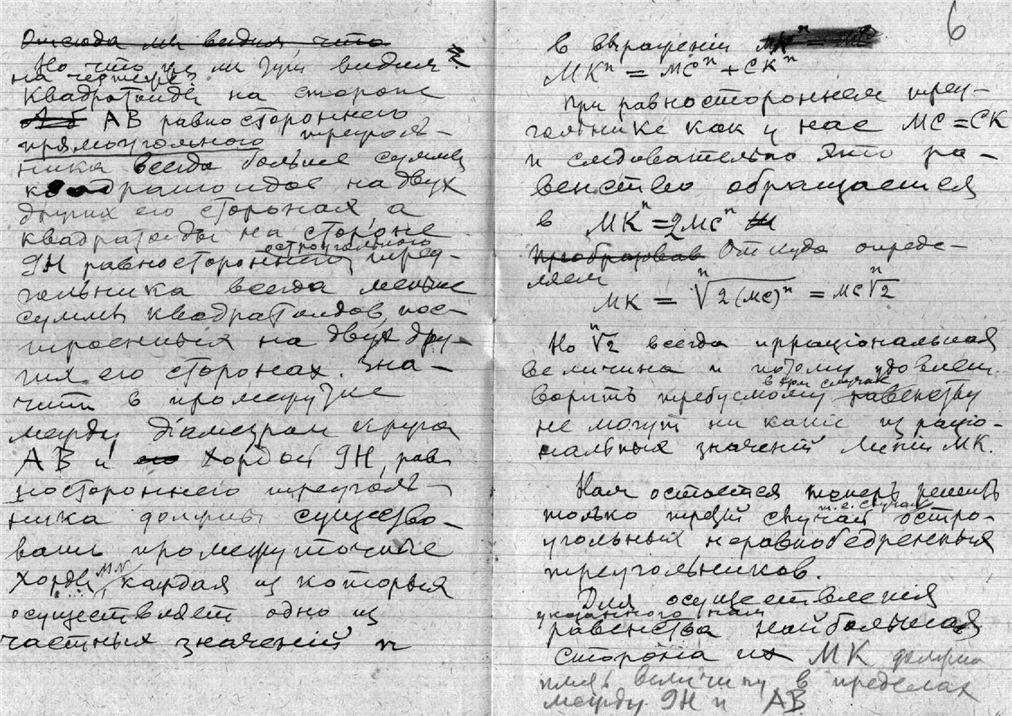 Отсюда мы видим, что
Но что же мы тут видим?
на чертеже
Квадратоиды на стороне
АБ АВ равностороннего
прямоугольного треуголь-
ника всегда больше суммы
квадратоидов на двух
других его сторонах, а
квадратоиды на стороне
остроугольного
ЯН равносторонней треу-
гольника всегда меньше
суммы квадратоидов, пос-
троенных на двух дру-
гих его сторонах. Зна-
чит в промежутке
между діаметром круга
АВ и его хордой ЯН, рав
ностороннего треуголь-
ника должны существо-
вать промежуточные
хорды МК каждая из которых
осуществляет одно из
частных значений n
6
в выражении
MKⁿ = MCⁿ + CKⁿ
При равностороннем треу-
гольнике как у нас MC = CK
и следовательно это ра-
венство обращается
в MKⁿ = 2MCⁿ
Преобразовав Откуда опреде-
ляем
MK = ⁿ√2(MC)ⁿ = MC ⁿ√2
Но ⁿ√2 всегда ирраціональная
величина и потому удовлет-
в том случае
ворить требуемому равенству
не могут ни какіе из раціо-
нальных значений линій МК.
Нам остается теперь решить
т.е. случай
только третій случай остро-
угольных неравнобедренных
треугольников.
Для осуществления
указанного нам
равенства наибольшая
сторона их МК должна
иметь величину в пределах
между ЯН и АВ